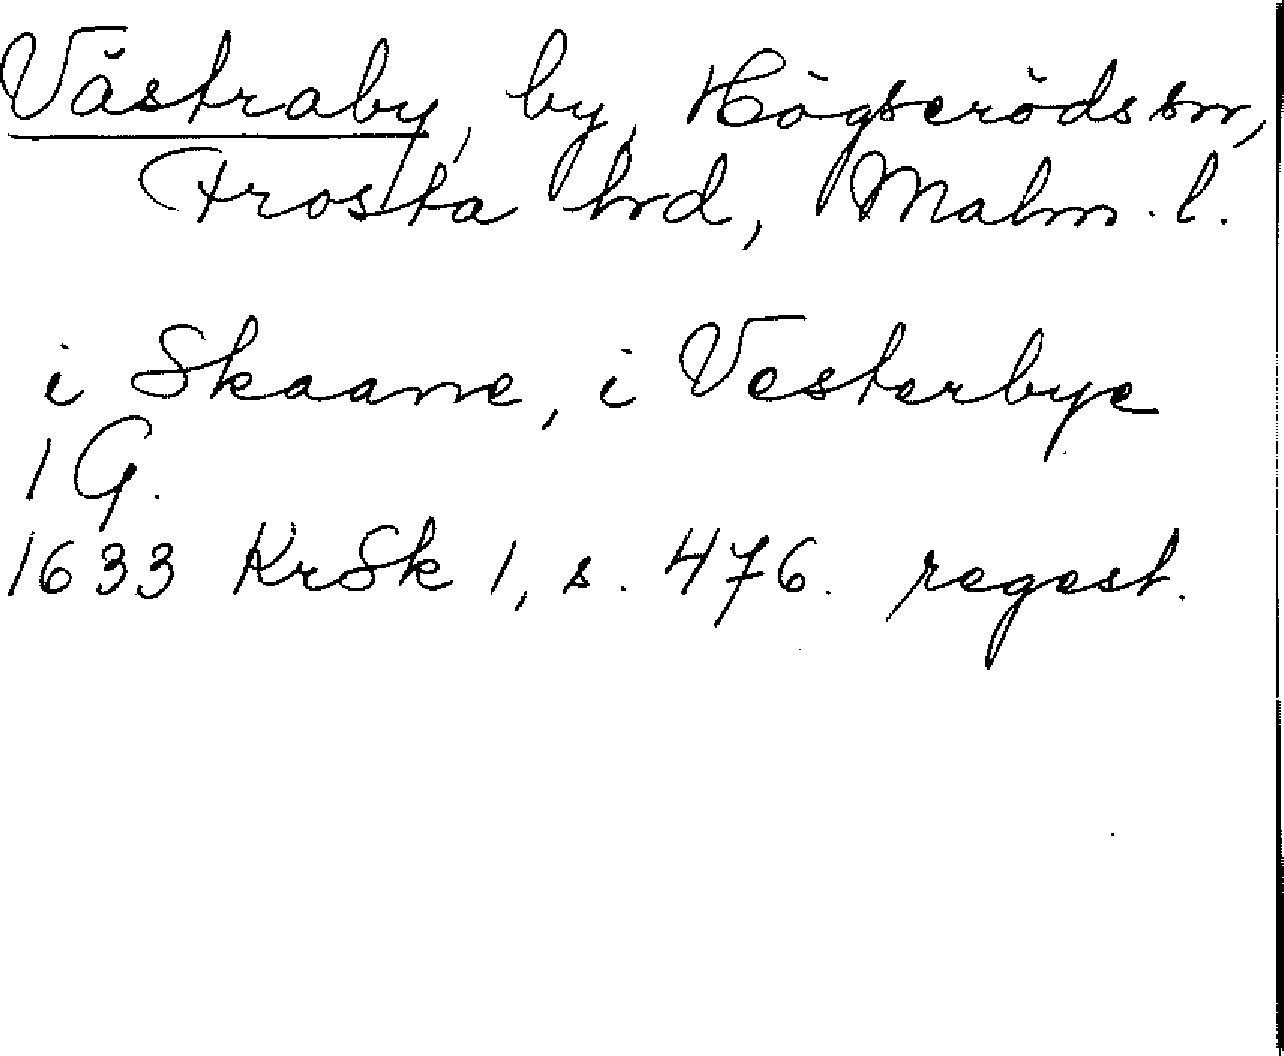 Västraby, by, Högseröds sn,
Frosta hrd, Malm. l.
i Skaane, i Vesterbye
1 G.
1633 KrSk 1, s. 476. regest.